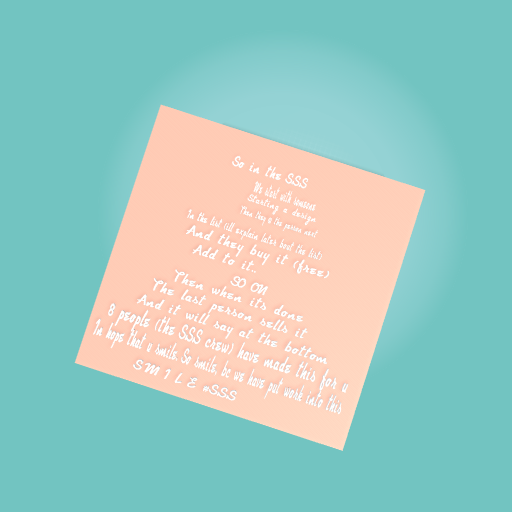 So in the SSS
We start with someone
Starting a design
Then they @ the person next
In the list (ill explain later bout the list)
And they buy it (free)
Add to it..
SO ON
Then when its done
The last person sells it
And it will say at the bottom
8 people (the SSS crew) have made this for u
In hope that u smile. So smile, bc we have put work into this
S M I L E #SSS